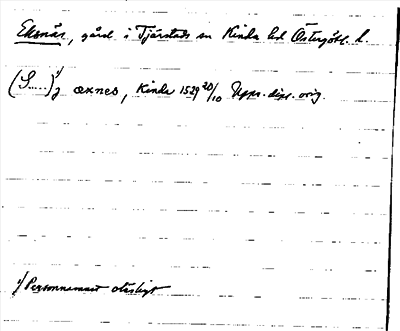 Eksnäs, gård i Tjärstads sn Kinda hd Östergötl. l.
(S.....)¹⁾ j œxnes, Kinda 1529 20/10 Upps. dipl. orig.
¹⁾ Personnamnet oläsligt